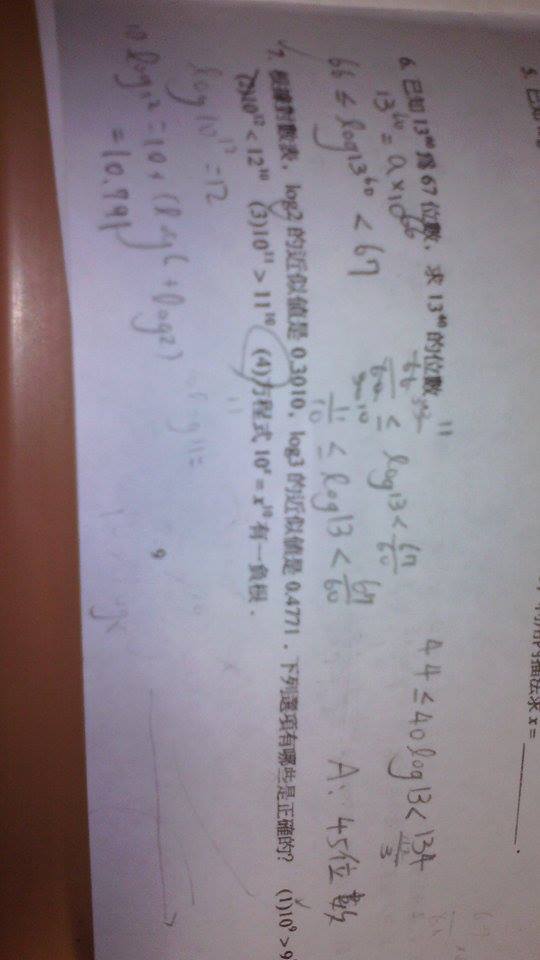 5. 已知
求 x = ______.
6. 已知 13⁶⁰ 為 67 位數，求 13⁴⁰ 的位數
13⁶⁰ = a × 10⁶⁶
66 ≤ log13⁶⁰ < 67
≤ log13 < 67/60
11/10 ≤ log13 < 67/60
44 ≤ 40log13 < 134/3
A: 45位數
7. 根據對數表，log2 的近似值是 0.3010，log3 的近似值是 0.4771．下列選項有哪些是正確的？ (1)10⁹ > 9
(2)10¹² < 12¹⁰ (3)10¹¹ > 11¹⁰ (4)方程式 10ˣ = x¹⁰ 有一負根．
log10¹² = 12
10 log12 = 10 × (log6 + log2)
= 10.791
9